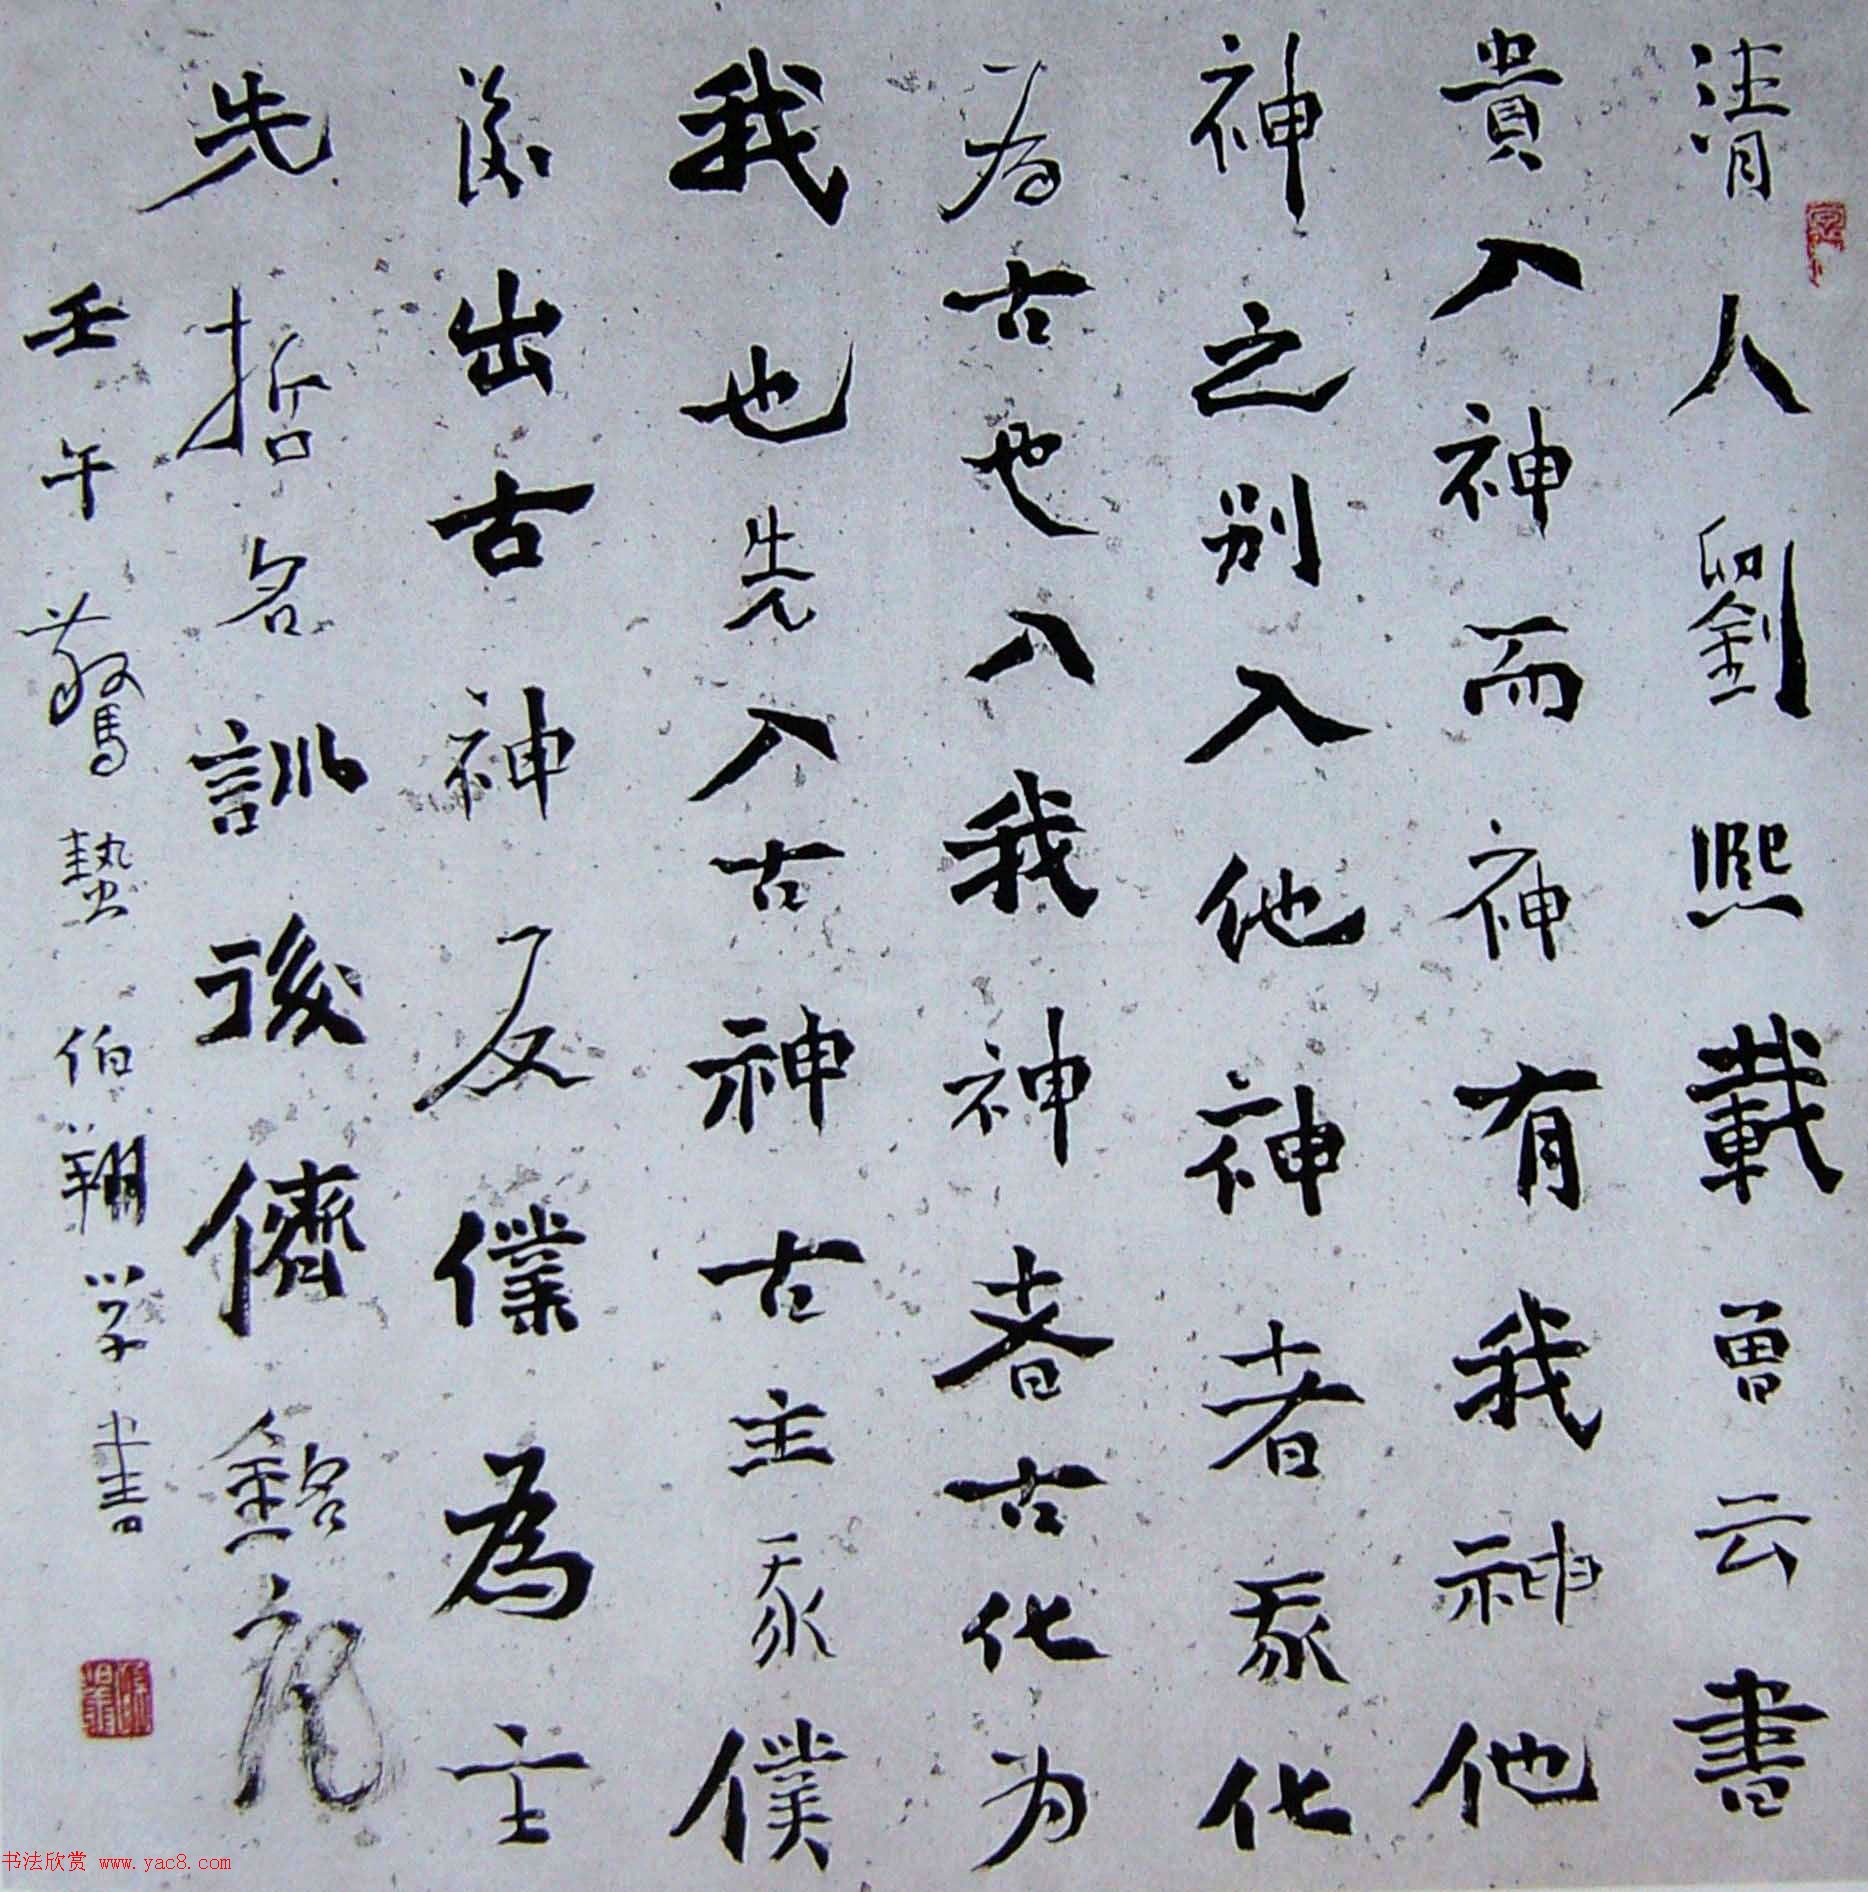 清人劉熙載曾云書
貴入神而神有我神他
神之别入他神者豖化
為古也入我神者古化为
我也先入古神古主豖僕
後出古神反僕為主
先哲名訓後儕銘記
壬午驚蟄伯翔学書
书法欣赏 www.yac8.com